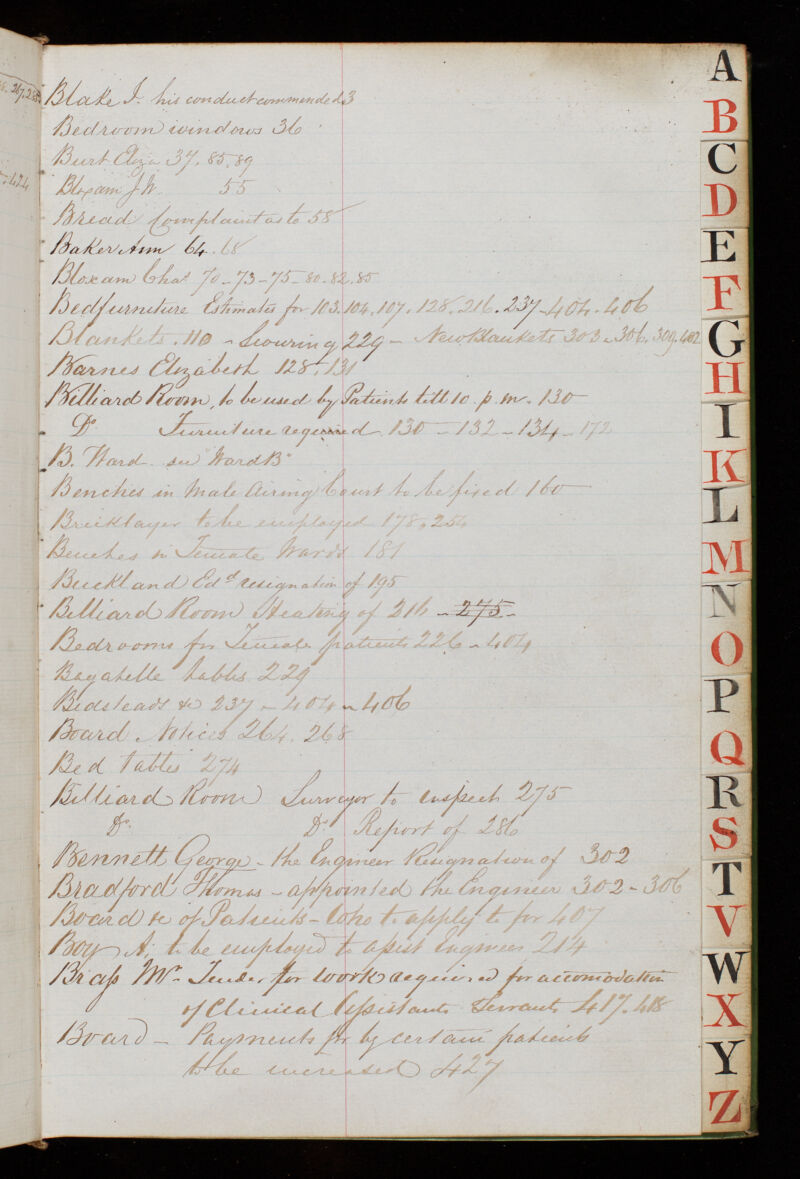 Blake J. his conduct commended 3
Bedroom windows 36
Burt Eliza 37. 85. 89
Bloxam J W. 55
Bread Complaint as to 58
Baker Ann 64. 68
Bloxam Chas. 70 - 73 - 75 - 80. 82. 85
Bedfurniture Estimates for 103. 104. 107. 128. 216. 237 - 404. 406
Blankets. 110 - Scouring 229 - New Blankets 303. 306. 309. 402
Barnes Elizabeth 128. 131
Billiard Room, to be used by Patients till 10 p.m. 130
Do Furniture required 130 - 132 - 134 - 172
B. Ward see "Ward B"
Benches in Male Airing Court to be fixed 160
Bricklayer to be employed 178. 254
Benches in Female Wards 181
Buckland Edd. resignation of 195
Billiard Room Heating of 216 - 275 -
Bedrooms for Female patients 226 - 404
Bagatelle tables 229
Bedsteads &c 237 - 404 - 406
Board Notices 264. 268
Bed tables 274
Billiard Room Surveyor to inspect 275
Do. Do. Report of 286
Bennett George - the Engineer Resignation of 302
Bradford Thomas - appointed the Engineer 302 - 306
Board &c of Patients - who to apply to for 407
Boy A. to be employed to assist Engineer 214
Brass Mr. Tender for work required for accomodation
of Clinical Assistants Servants 417. 418
Board - Payments for by certain patients
to be increased 427
A
B
C
D
E
F
G
H
I
K
L
M
N
O
P
Q
R
S
T
V
W
X
Y
Z